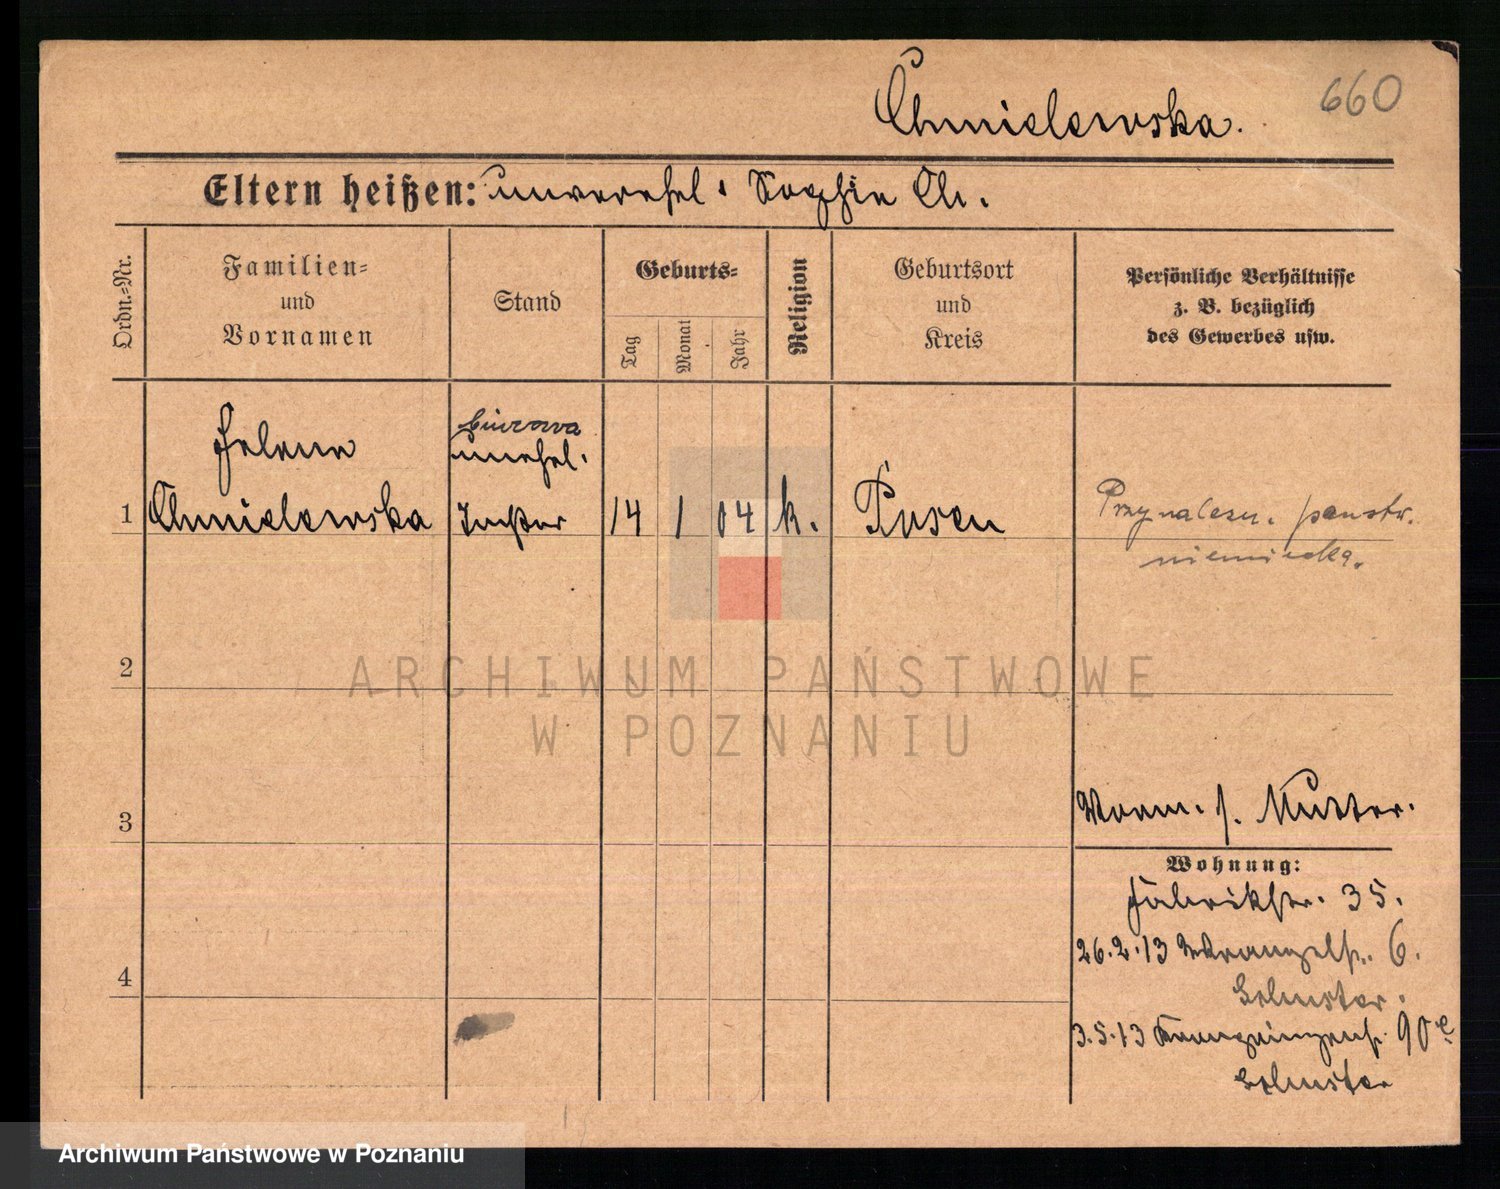 660
Chmielewska.
Eltern heißen: unverehel. Sophie Ch.
Ordn.=Nr.
Familien=
und
Vornamen
Stand
Geburts=
Tag
Monat
Jahr
Religion
Geburtsort
und
Kreis
Persönliche Verhältnisse
z. B. bezüglich
des Gewerbes usw.
biurowa
unehel.
Helene
1 Chmielewska Tochter 14 1 04 k. Posen
Przynależn. państw.
niemiecka.
2
ARCHIWUM PAŃSTWOWE
W POZNANIU
3
Vorm. s. Mutter.
Wohnung:
Fabrikstr. 35.
26.2.13 Wrangelstr. 6.
4
3.5.13 Kronprinzenstr. 90
Archiwum Państwowe w Poznaniu